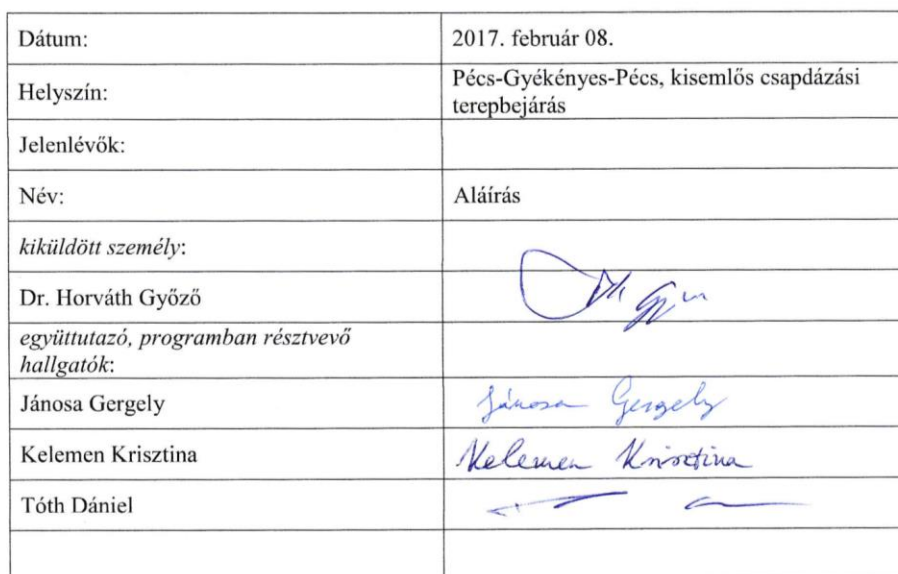 Dátum: 2017. február 08.
Helyszín: Pécs-Gyékényes-Pécs, kisemlős csapdázási
terepbejárás
Jelenlévők:
Név: Aláírás
kiküldött személy:
Dr. Horváth Győző
együttutazó, programban résztvevő
hallgatók:
Jánosa Gergely Jánosa Gergely
Kelemen Krisztina Kelemen Krisztina
Tóth Dániel